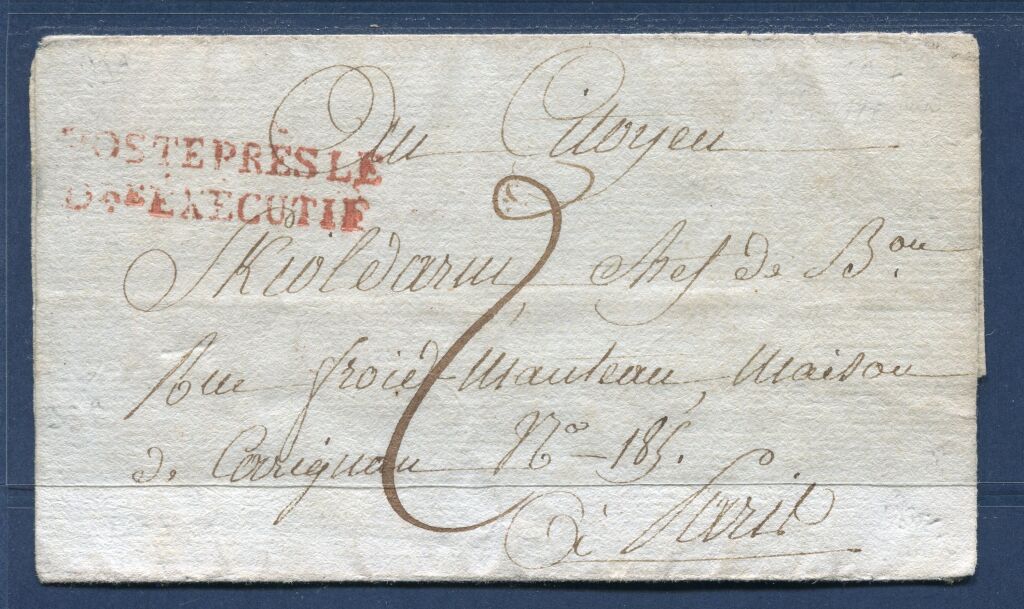 POSTE PRÈS LE
D.RE EXECUTIF
Au Citoyen
Skioldarm, Chef de B.on
Rue froid-Manteau, Maison
de Carignan N° - 185.
à Paris
2